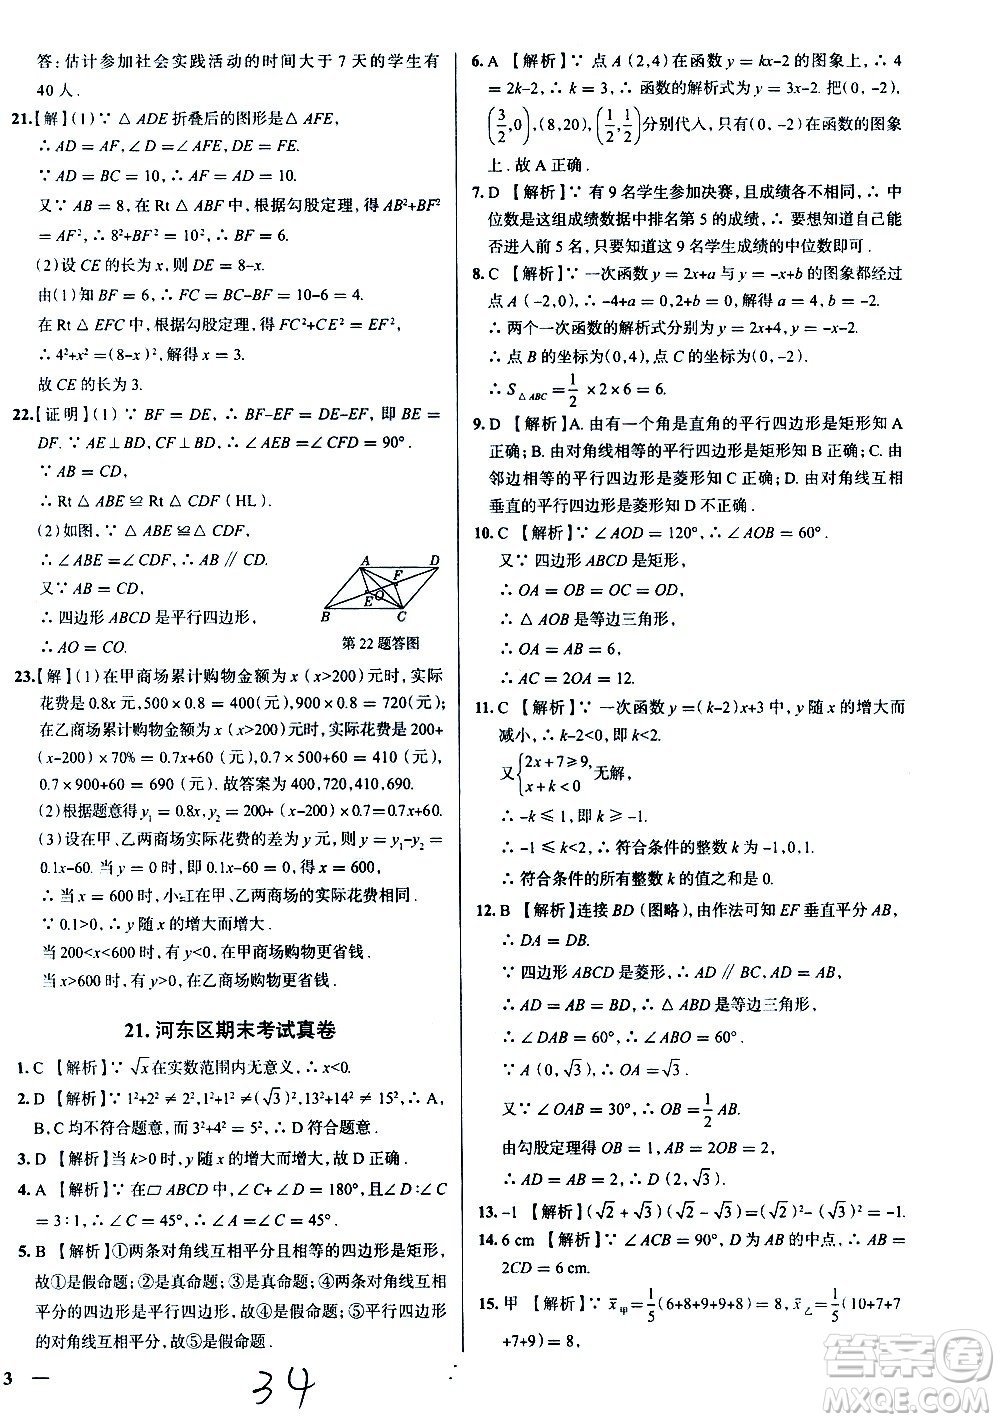 答:估计参加社会实践活动的时间大于 7 天的学生有
40 人.
21.【解】(1)∵ △ ADE 折叠后的图形是△ AFE,
∴ AD = AF,∠D = ∠AFE,DE = FE.
∵ AD = BC = 10,∴ AF = AD = 10.
又∵ AB = 8,在 Rt △ ABF 中,根据勾股定理,得 AB²+BF²
= AF²,∴ 8²+BF² = 10²,∴ BF = 6.
(2)设 CE 的长为 x,则 DE = 8-x.
由(1)知 BF = 6,∴ CF = BC-BF = 10-6 = 4.
在 Rt △ EFC 中,根据勾股定理,得 FC²+CE² = EF²,
∴ 4²+x² = (8-x)²,解得 x = 3.
故 CE 的长为 3.
22.【证明】(1)∵ BF = DE,∴ BF-EF = DE-EF,即 BE =
DF. ∵ AE ⊥ BD,CF ⊥ BD,∴ ∠AEB = ∠CFD = 90°.
∵ AB = CD,
∴ Rt △ ABE ≌ Rt △ CDF(HL).
(2)如图,∵ △ ABE ≌△ CDF,
∴ ∠ABE = ∠CDF,∴ AB // CD.
又∵ AB = CD,
∴ 四边形 ABCD 是平行四边形,
∴ AO = CO.
A D F E O B C
第 22 题答图
23.【解】(1)在甲商场累计购物金额为 x(x>200)元时,实际
花费为 0.8x 元,500×0.8 = 400(元),900×0.8 = 720(元);
在乙商场累计购物金额为 x(x>200)元时,实际花费为 200+
(x-200)×70% = 0.7x+60(元),0.7×500+60 = 410(元),
0.7×900+60 = 690(元).故答案为 400,720,410,690.
(2)根据题意得 y₁ = 0.8x,y₂ = 200+(x-200)×0.7=0.7x+60.
(3)设在甲、乙两商场实际花费的差为 y 元,则 y = y₁-y₂ =
0.1x-60.当 y = 0 时,即 0.1x-60 = 0,得 x = 600,
∴ 当 x = 600 时,小红在甲、乙两商场的实际花费相同.
∵ 0.1>0,∴ y 随 x 的增大而增大.
当 200<x<600 时,y<0,在甲商场购物更省钱.
当 x>600 时,y>0,在乙商场购物更省钱.
21. 河东区期末考试真卷
1. C 【解析】∵ √x 在实数范围内无意义,∴ x<0.
2. D 【解析】∵ 1²+2² ≠ 2²,1²+1² ≠(√3)²,13²+14² ≠ 15²,∴ A,
B,C 均不符合题意,∵ 3²+4² = 5²,∴ D 符合题意.
3. D 【解析】当 k>0 时,y 随 x 的增大而增大,故 D 正确.
4. A 【解析】∵ 在▱ABCD 中,∠C+∠D = 180°,且∠D∶∠C
= 3∶1,∴ ∠C = 45°,∴ ∠A = ∠C = 45°.
5. B 【解析】①两条对角线互相平分且相等的四边形是矩形,
故①是假命题;②是真命题;③是真命题;④两条对角线互相
平分的四边形是平行四边形,故④是假命题;⑤平行四边形
的对角线互相平分,故⑤是假命题.
6. A 【解析】∵ 点 A(2,4)在函数 y = kx-2 的图象上,∴ 4
= 2k-2,∴ k = 3,∴ 函数的解析式为 y = 3x-2. 把(0,-2),
(3/2,0),(8,20),(1/2,1/2)分别代入,只有(0,-2)在函数的图象
上.故 A 正确.
7. D 【解析】∵ 有 9 名学生参加决赛,且成绩各不相同,∴ 中
位数是这组成绩数据中排名第 5 的成绩,∴ 要想知道自己能
否进入前 5 名,只要知道这 9 名学生成绩的中位数即可.
8. C 【解析】∵ 一次函数 y = 2x+a 与 y = -x+b 的图象都经过
点 A(-2,0),∴ -4+a = 0,2+b = 0,解得 a = 4,b = -2.
∴ 两个一次函数的解析式分别为 y = 2x+4,y = -x-2.
∴ 点 B 的坐标为(0,4),点 C 的坐标为(0,-2).
∴ S△ABC = 1/2 ×2×6 = 6.
9. D 【解析】A. 由有一个角是直角的平行四边形是矩形知 A
正确;B. 由对角线相等的平行四边形是矩形知 B 正确;C. 由
邻边相等的平行四边形是菱形知 C 正确;D. 由对角线互相
垂直的平行四边形是菱形知 D 不正确.
10. C 【解析】∵ ∠AOD = 120°,∴ ∠AOB = 60°.
又∵ 四边形 ABCD 是矩形,
∴ OA = OB = OC = OD,
∴ △ AOB 是等边三角形,
∴ OA = AB = 6,
∴ AC = 2OA = 12.
11. C 【解析】∵ 一次函数 y =(k-2)x+3 中,y 随 x 的增大而
减小,∴ k-2<0,即 k<2.
又{2x+7≥9,
x+k<0 无解,
∴ -k ≤ 1,即 k≥-1.
∴ -1 ≤ k<2,∴ 符合条件的整数 k 为-1,0,1.
∴ 符合条件的所有整数 k 的值之和是 0.
12. B 【解析】连接 BD(图略),由作法可知 EF 垂直平分 AB,
∴ DA = DB.
∵ 四边形 ABCD 为菱形,∴ AD // BC,AD = AB,
∴ AD = AB = DB,∴ △ DAB 是等边三角形,
∴ ∠DAB = 60°,∴ ∠OBA = 60°.
∵ A(0,√3),∴ OA = √3.
又∵ ∠OAB = 30°,∴ OB = 1/2 AB.
由勾股定理得 OB = 1,AB = 2OB = 2.
∴ AD = AB = 2,∴ D(2,√3).
13. -1 【解析】(√2+√3)(√2-√3)=(√2)²-(√3)² = -1.
14. 6 cm 【解析】∵ ∠ACB = 90°,D 为 AB 的中点,∴ AB =
2CD = 6 cm.
15. 甲 【解析】∵ x̄甲 = 1/5 (6+8+9+9+8) = 8,x̄乙 = 1/5 (10+7+7
+7+9) = 8,
3 —
34
答案圈
MXQE.COM